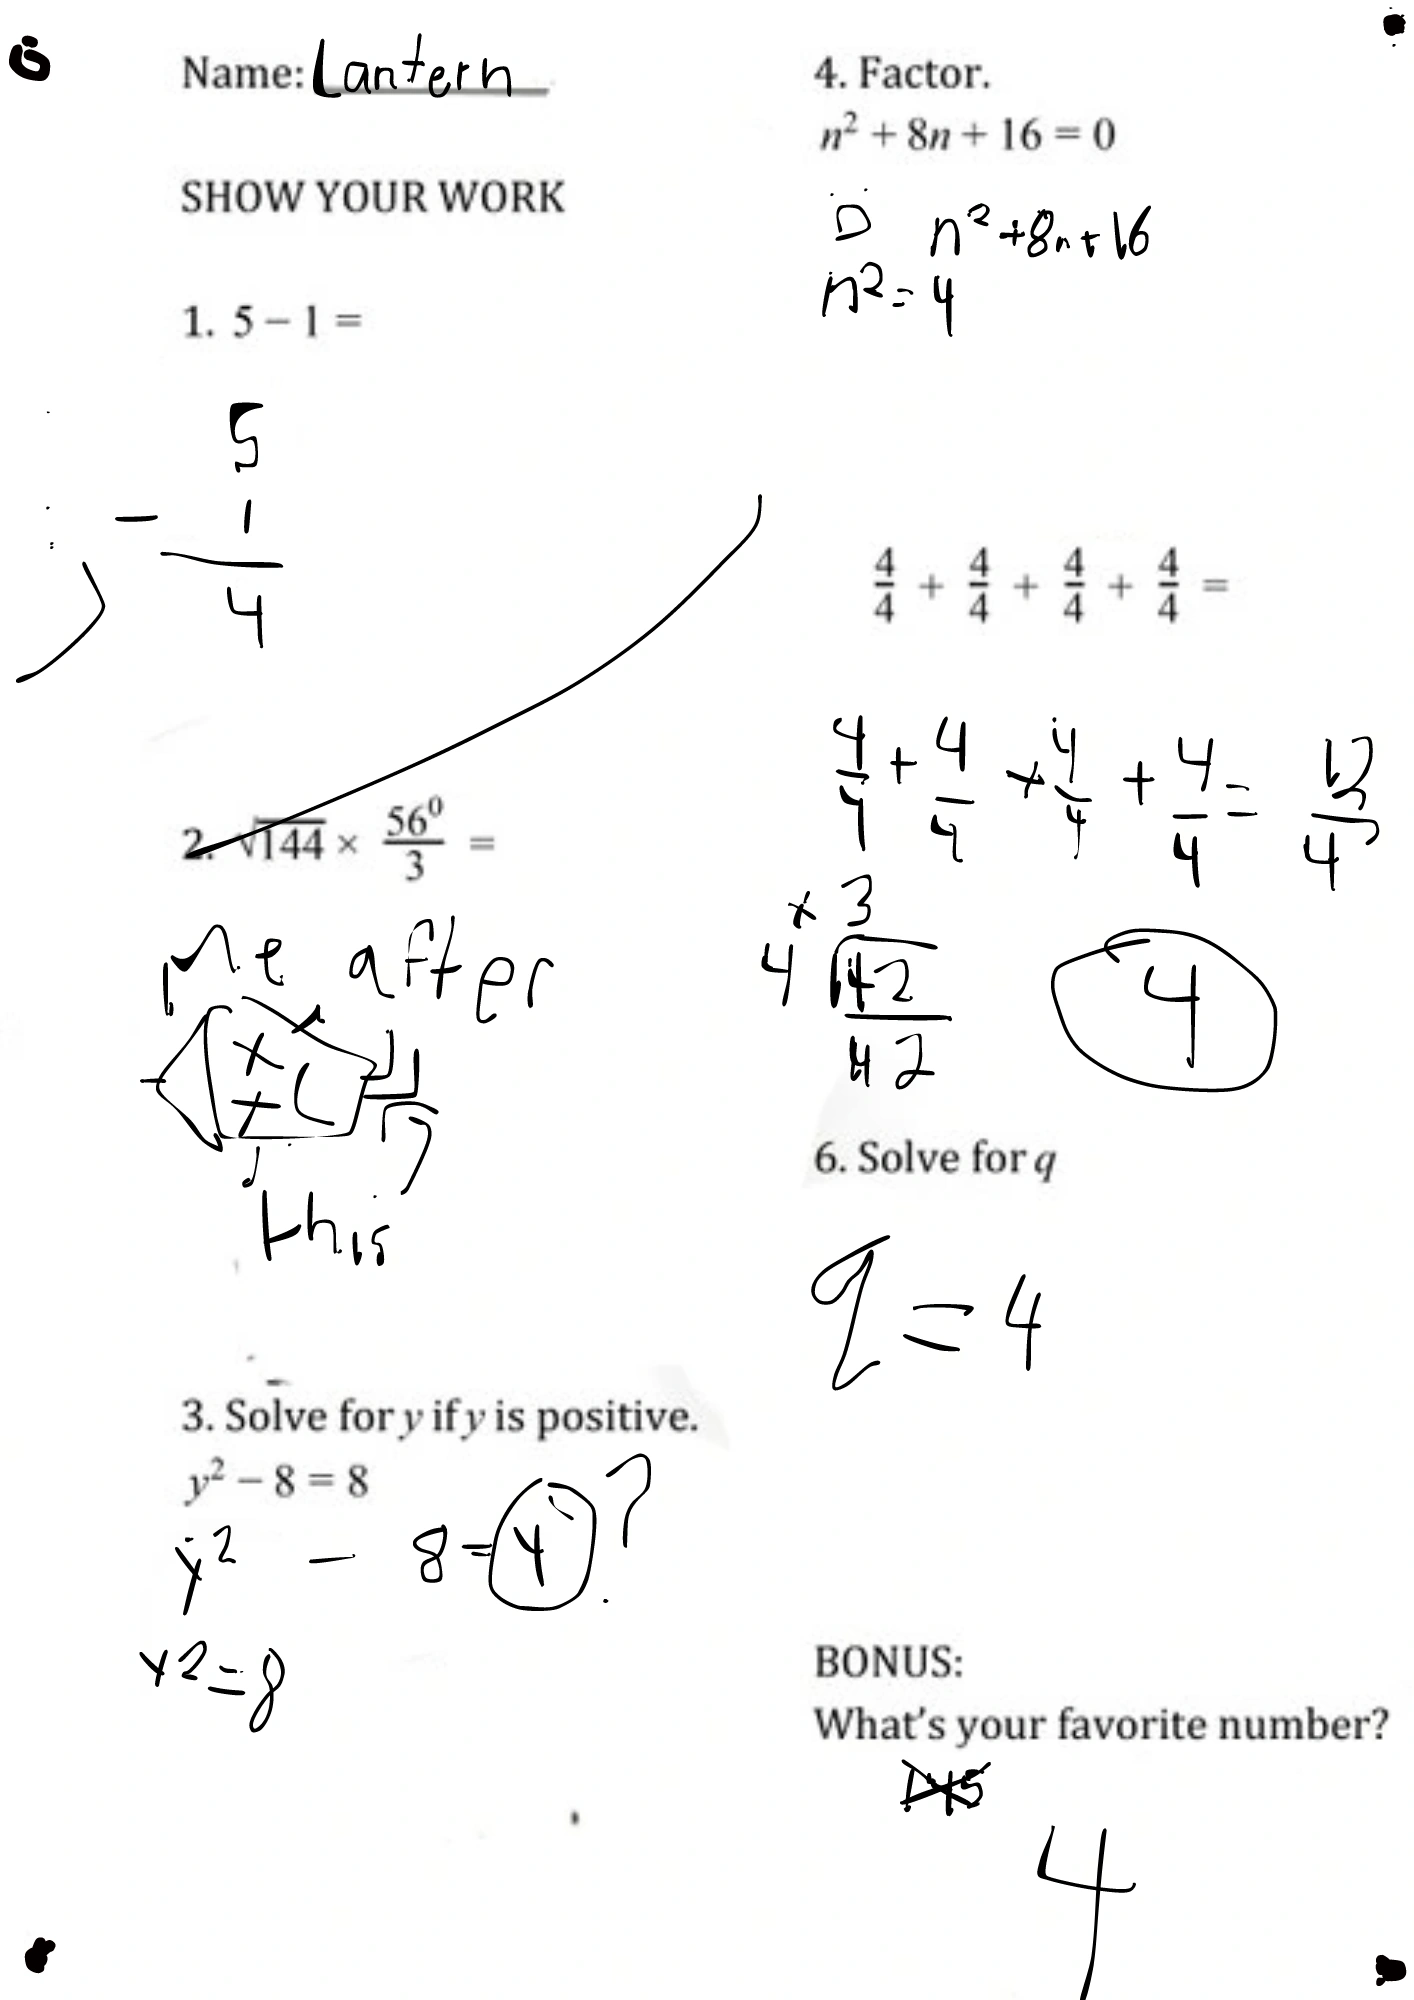 Name: Lantern
SHOW YOUR WORK
1. 5 – 1 =
5
– 1
4
2. √144 × 56⁰/3 =
Me after
this
3. Solve for y if y is positive.
y² – 8 = 8
y² – 8 = 4 ?
y2 = 8
4. Factor.
n² + 8n + 16 = 0
n² + 8n + 16
n² = 4
4/4 + 4/4 + 4/4 + 4/4 =
4/4 + 4/4 + 4/4 + 4/4 = 12/4
× 3
4 42
42
4
6. Solve for q
q = 4
BONUS:
What's your favorite number?
4